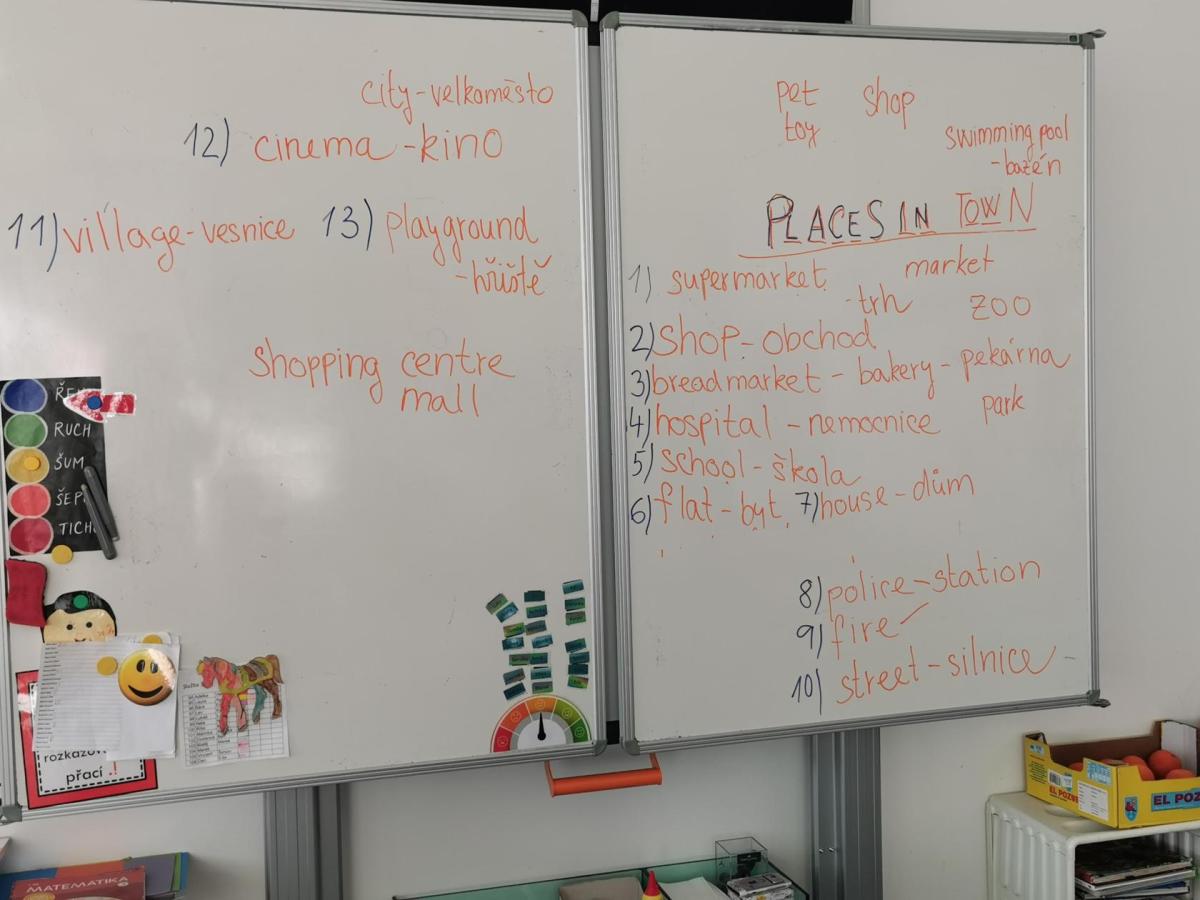 city-velkoměsto
12) cinema-kino
11) village-vesnice 13) playground
-hřiště
shopping centre
mall
RUCH
ŠUM
ŠEP
TICH
přací .!
MATEMATIKA
pet shop
toy
swimming pool
-bazén
PLACES IN TOWN
1) supermarket market
-trh ZOO
2) shop-obchod
3) breadmarket - bakery - pekárna
park
4) hospital - nemocnice
5) school-škola
6) flat-byt 7) house-dům
8) police-station
9) fire
10) street-silnice
EL POZO